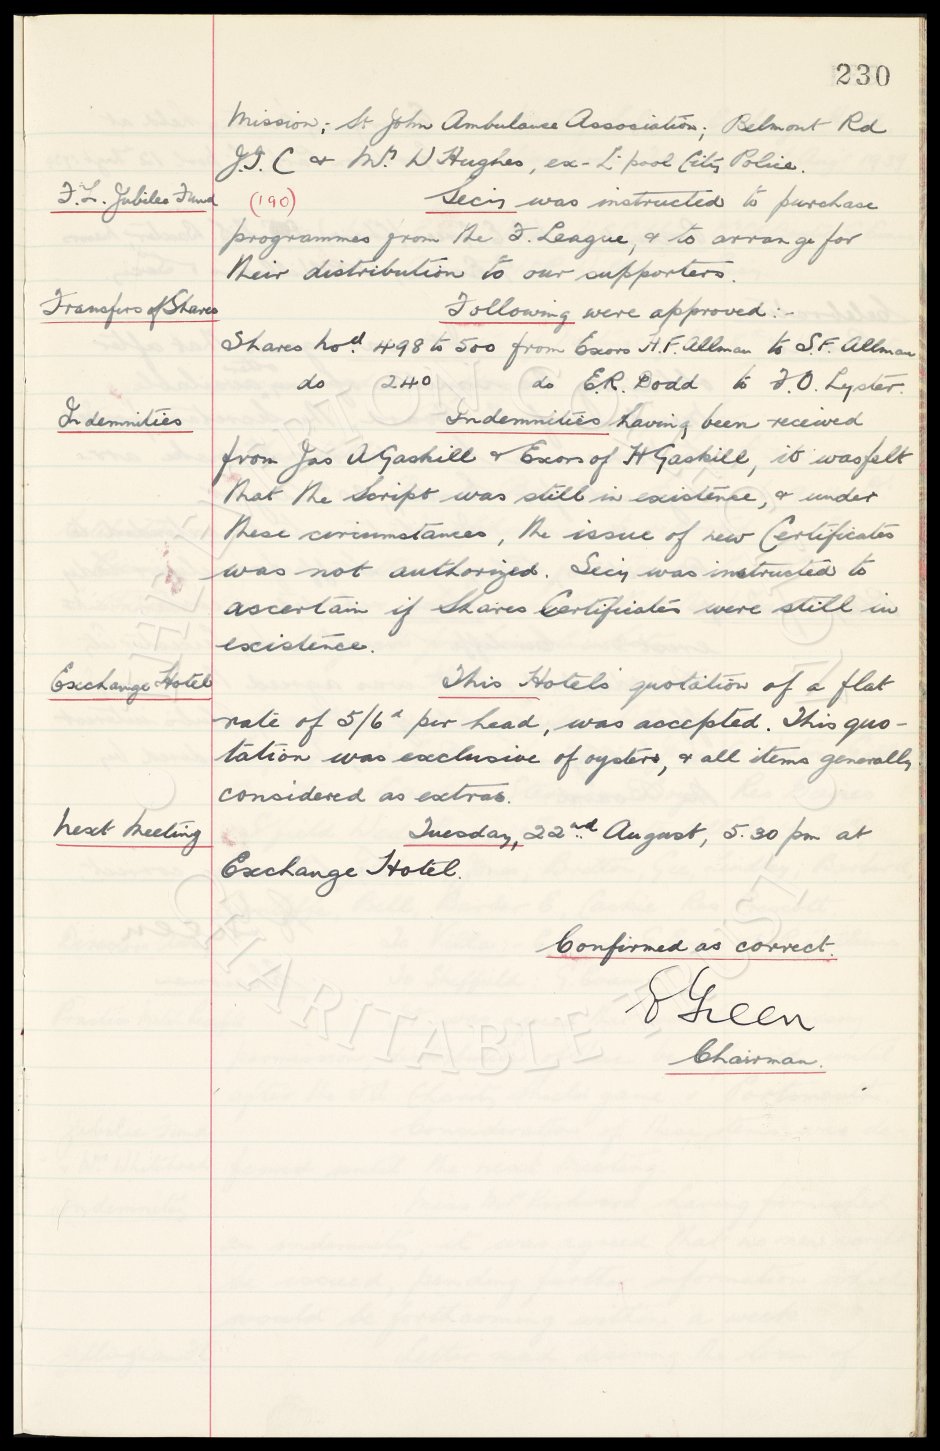 230
Mission; St John Ambulance Association; Belmont Rd
J.I.C & Mr. W Hughes, ex-L'pool City Police.
F.L. Jubilee Fund (190) Secy was instructed to purchase
programmes from the F. League, & to arrange for
their distribution to our supporters.
Transfers of Shares Following were approved:-
Shares Nos. 498 to 500 from Exors H.F. Allman to S.F. Allman
do 240 do E.R. Dodd to F.O. Lyster.
Indemnities Indemnities having been received
from Jas A Gaskill & Exors of H Gaskill, it was felt
that the Script was still in existence, & under
these circumstances, the issue of new Certificates
was not authorized. Secy was instructed to
ascertain if Shares Certificates were still in
existence.
Exchange Hotel This Hotel's quotation of a flat
rate of 5/6d per head, was accepted. This quo-
tation was exclusive of oysters, & all items generally
considered as extras.
Next Meeting Tuesday, 22nd August, 5.30 pm at
Exchange Hotel.
Confirmed as correct.
E Green
Chairman.
CHARITABLE TRUST